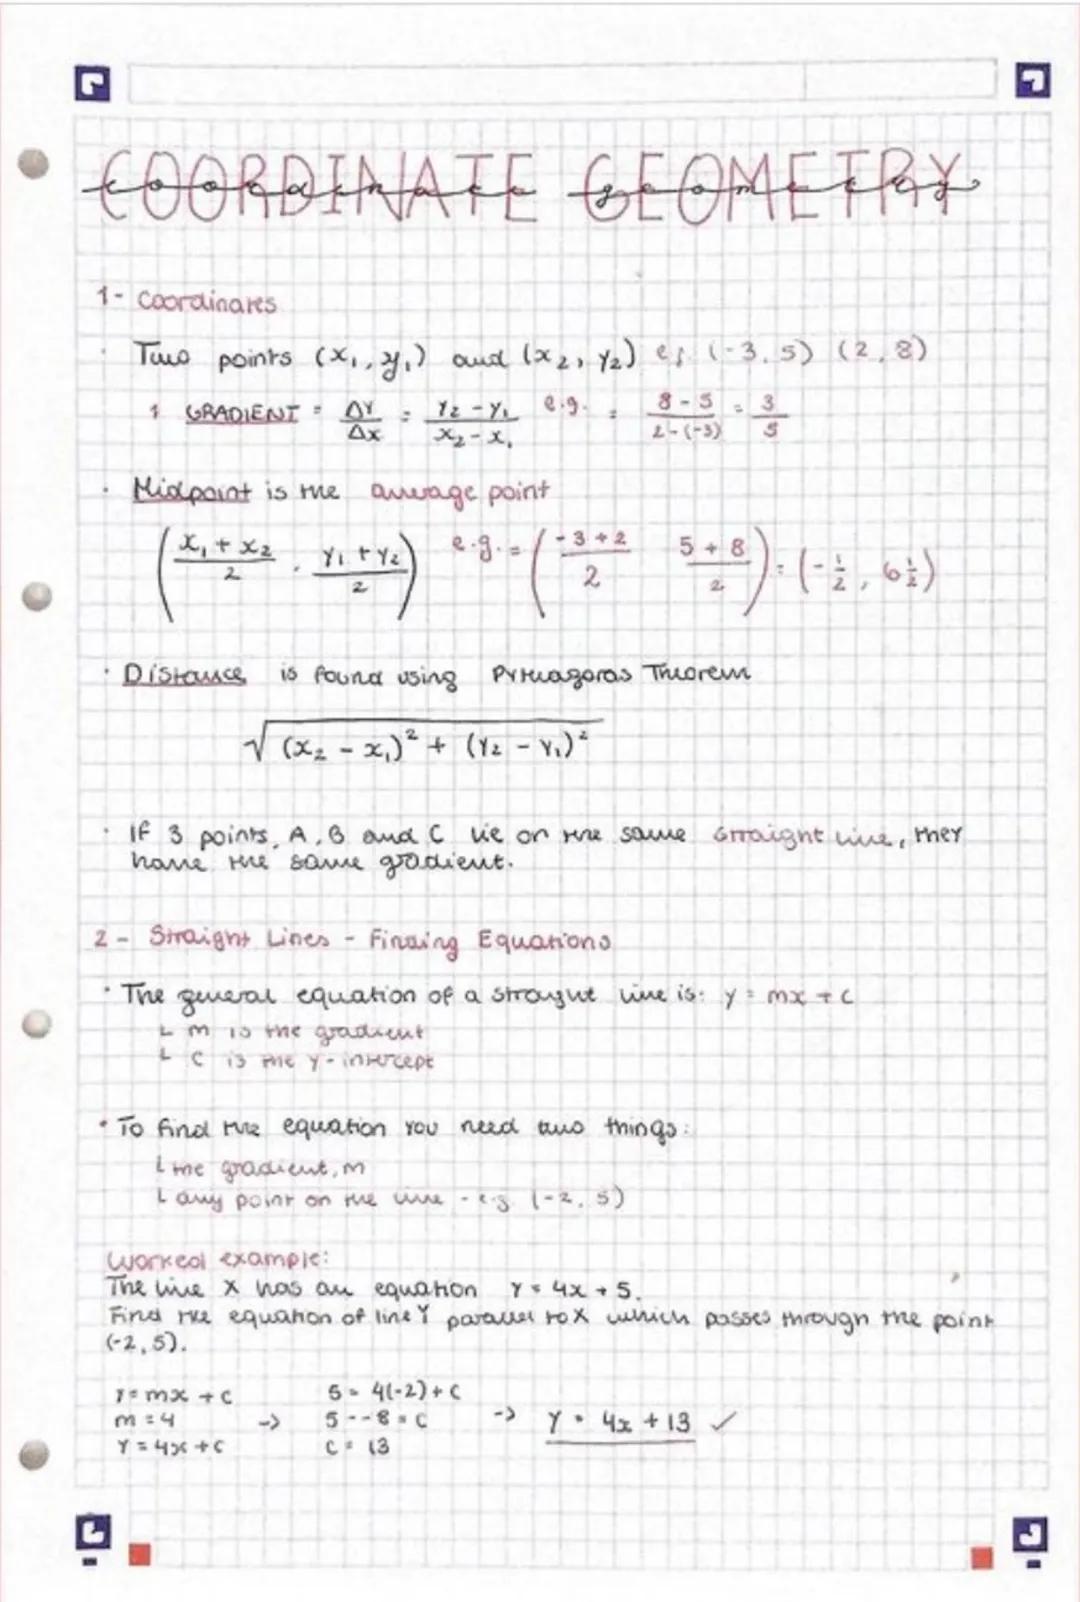 COORDINATE GEOMETRY
coordinate geometry
1- Coordinates
· Two points (x₁, y₁) and (x₂, y₂) eg. (-3, 5) (2, 8)
1 GRADIENT = ΔY/Δx = (Y₂ - Y₁)/(x₂ - x₁) e.g. = (8 - 5)/(2 - (-3)) = 3/5
· Midpoint is the average point
((x₁ + x₂)/2 , (Y₁ + Y₂)/2) e.g. = ((-3 + 2)/2 (5 + 8)/2) = (-½, 6½)
· Distance is found using Pythagoras Theorem
√((x₂ - x₁)² + (Y₂ - Y₁)²)
· If 3 points, A, B and C lie on the same straight line, they
have the same gradient.
2 - Straight Lines - Finding Equations
· The general equation of a straight line is: y = mx + c
└ m is the gradient
└ c is the y-intercept
· To find the equation you need two things:
└ the gradient, m
└ any point on the line - e.g. (-2, 5)
Worked example:
The line X has an equation Y = 4x + 5.
Find the equation of line Y parallel to X which passes through the point
(-2, 5).
Y = mx + c 5 = 4(-2) + c
m = 4 -> 5 - -8 = c -> Y = 4x + 13 ✓
Y = 4x + c c = 13